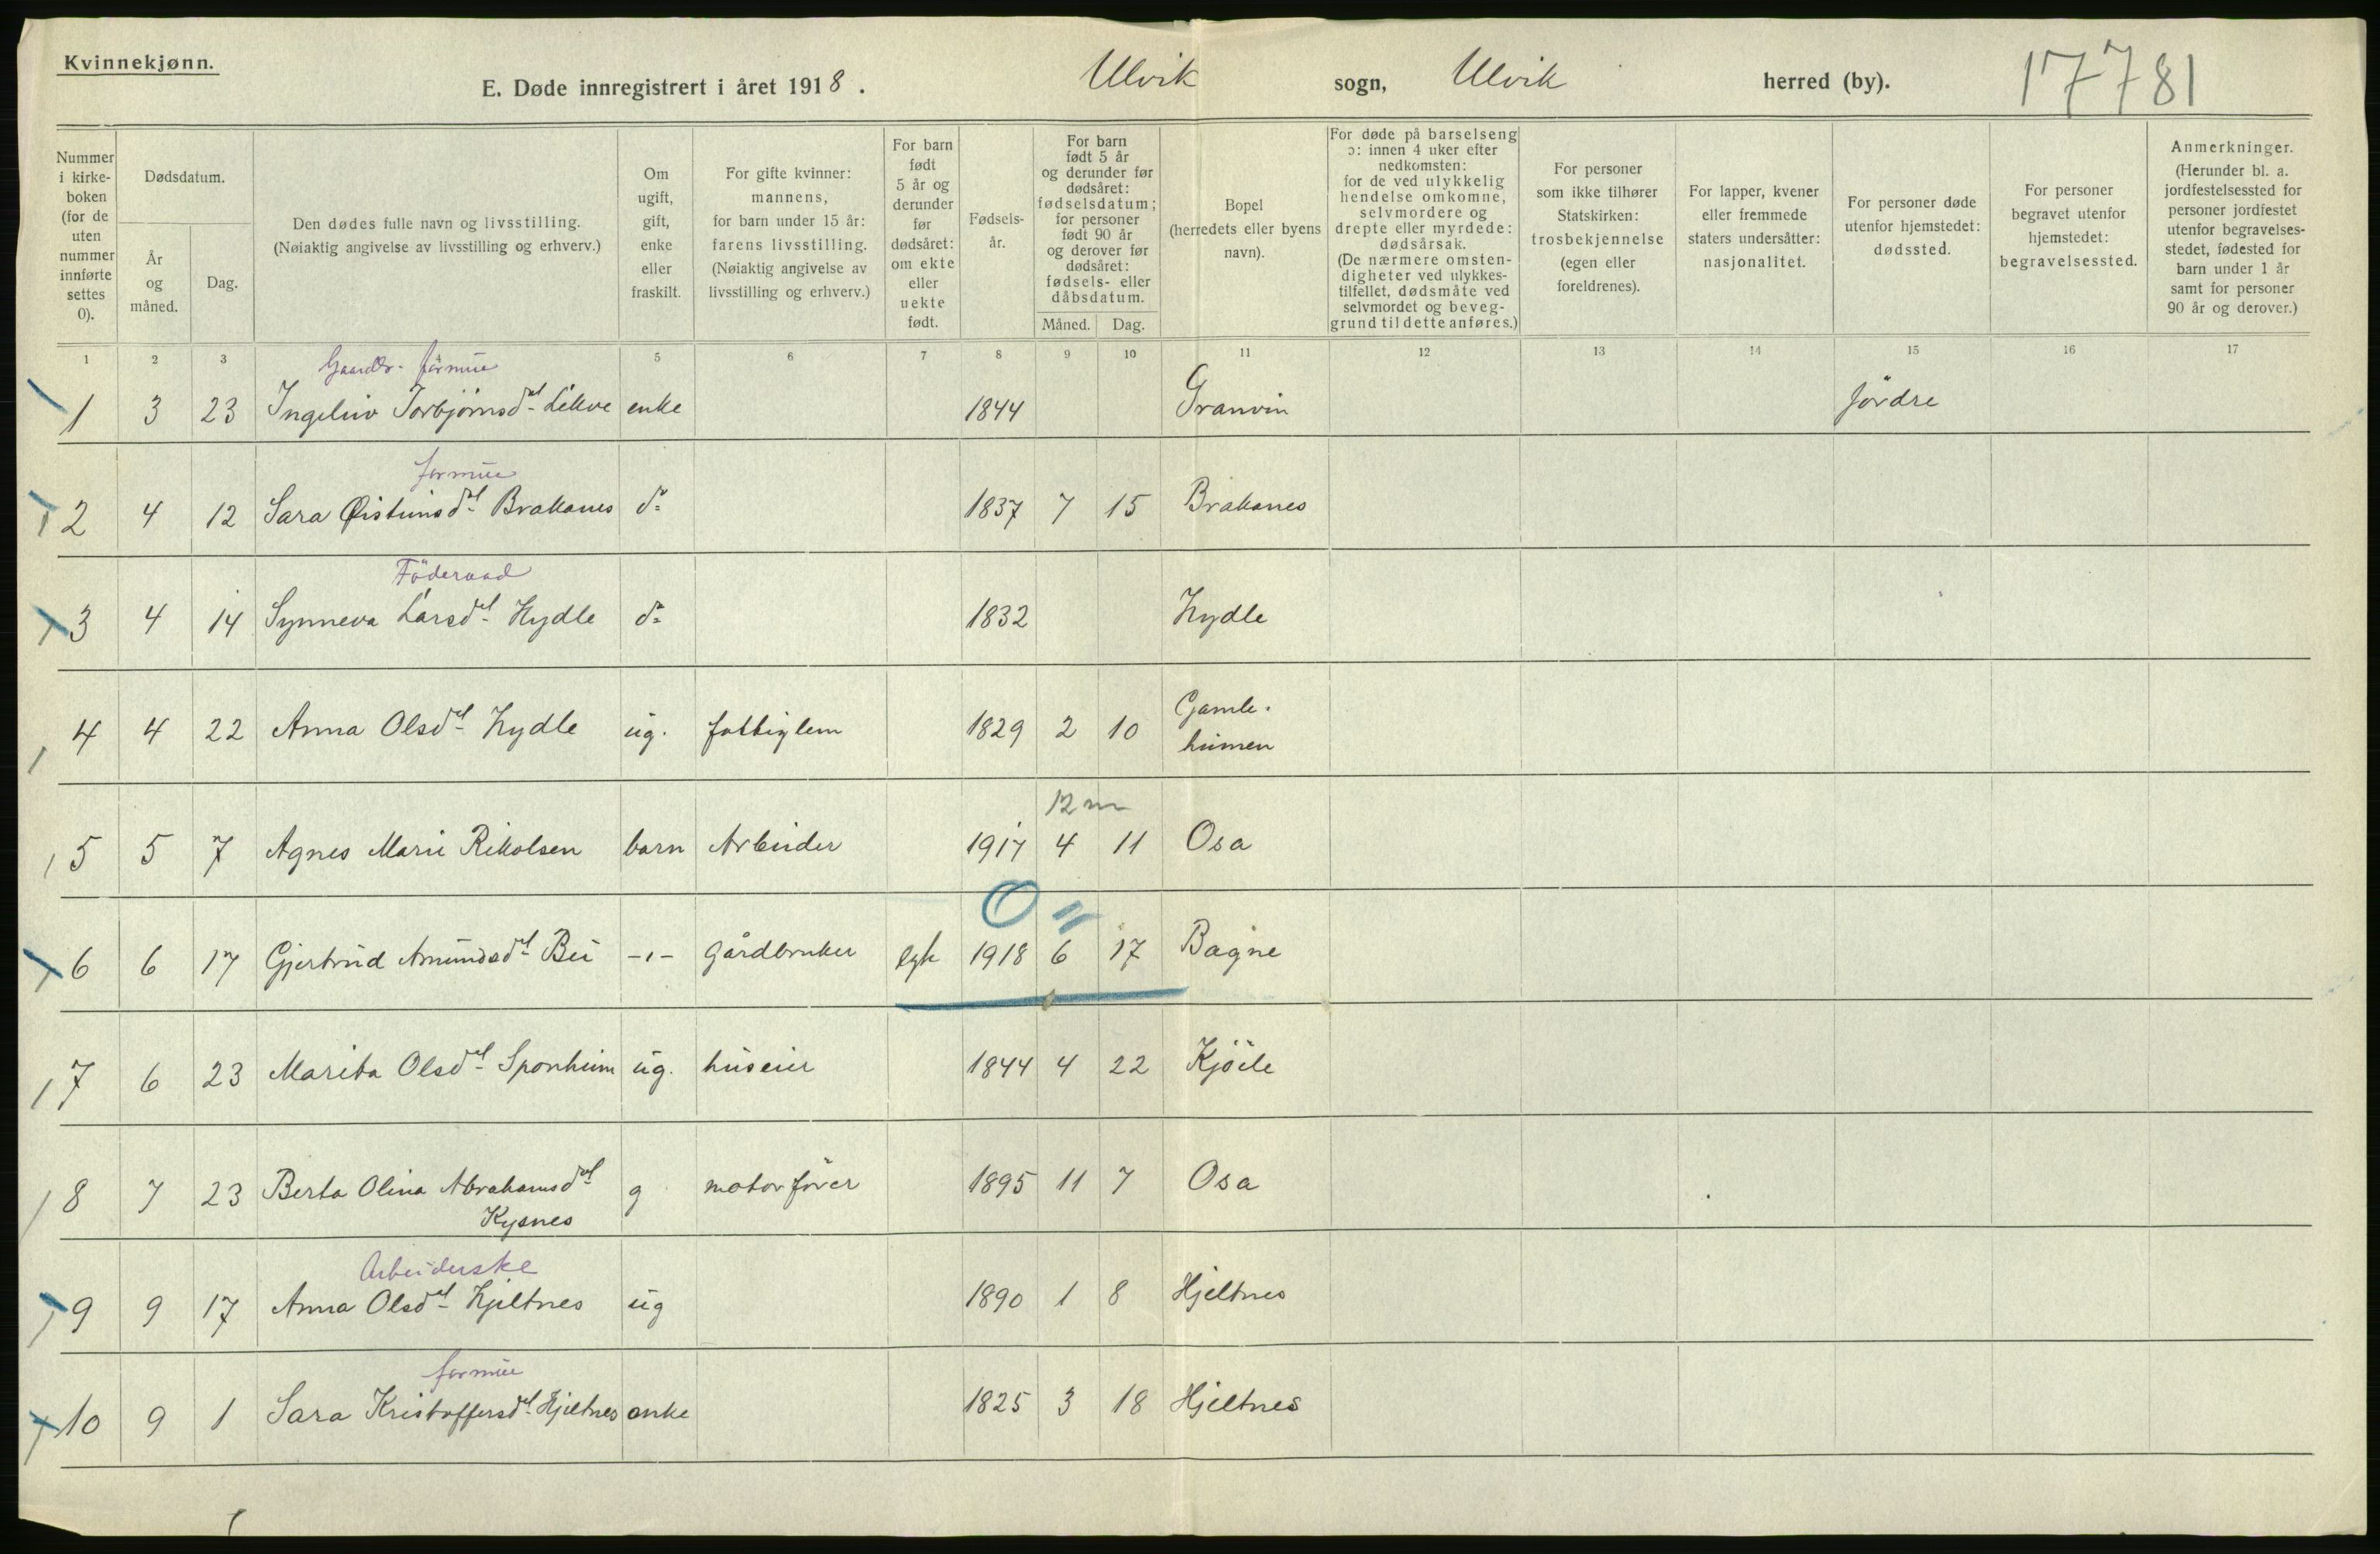 Kvinnekjønn.
E. Døde innregistrert i året 1918. Ulvik sogn, Ulvik herred (by). 17781
Nummer i kirke-boken (for de uten nummer innførte settes 0).
Dødsdatum.
År og måned.
Dag.
Den dødes fulle navn og livsstilling. (Nøiaktig angivelse av livsstilling og erhverv.)
Om ugift, gift, enke eller fraskilt.
For gifte kvinner: mannens, for barn under 15 år: farens livsstilling. (Nøiaktig angivelse av livsstilling og erhverv.)
For barn født 5 år og derunder før dødsåret: om ekte eller uekte født.
Fødsels-år.
For barn født 5 år og derunder før dødsåret: fødselsdatum; for personer født 90 år og derover før dødsåret: fødsels- eller dåbsdatum.
Måned. Dag.
Bopel (herredets eller byens navn).
For døde på barselseng ɔ: innen 4 uker efter nedkomsten: for de ved ulykkelig hendelse omkomne, selvmordere og drepte eller myrdede: dødsårsak. (De nærmere omsten-digheter ved ulykkes-tilfellet, dødsmåte ved selvmordet og beveg-grund til dette anføres.)
For personer som ikke tilhører Statskirken: trosbekjennelse (egen eller foreldrenes).
For lapper, kvener eller fremmede staters undersåtter: nasjonalitet.
For personer døde utenfor hjemstedet: dødssted.
For personer begravet utenfor hjemstedet: begravelsessted.
Anmerkninger. (Herunder bl. a. jordfestelsessted for personer jordfestet utenfor begravelses-stedet, fødested for barn under 1 år samt for personer 90 år og derover.)
1 2 3 5 6 7 8 9 10 11 12 13 14 15 16 17
Gaardbr. formue
1 3 23 Ingeliv Torbjörnsdtl Lekve enke 1844 Granvin Jördre
formue
2 4 12 Sara Øisteinsdtl Brakanes do 1837 7 15 Brakanes
Föderaad
3 4 14 Synneva Larsdtl Hydle do 1832 Hydle
4 4 22 Anna Olsdtl Hydle ug. fattiglem 1829 2 10 Gamle.
heimen
12 m
5 5 7 Agnes Marie Rikolsen barn Arbeider 1917 4 11 Osa
0 "
6 6 17 Gjertrud Amundsdtl Bu -"- Gårdbruker egte 1918 6 17 Bagne
7 6 23 Marita Olsdtl Sponheim ug. huseier 1844 4 22 Kjöile
8 7 23 Berta Olina Abrahamsdtl g motorförer 1895 11 7 Osa
Kysnes
Arbeiderske
9 9 17 Anna Olsdtl Hjeltnes ug 1890 1 8 Hjeltnes
formue
10 9 1 Sara Kristoffersdtl Hjeltnes enke 1825 3 18 Hjeltnes